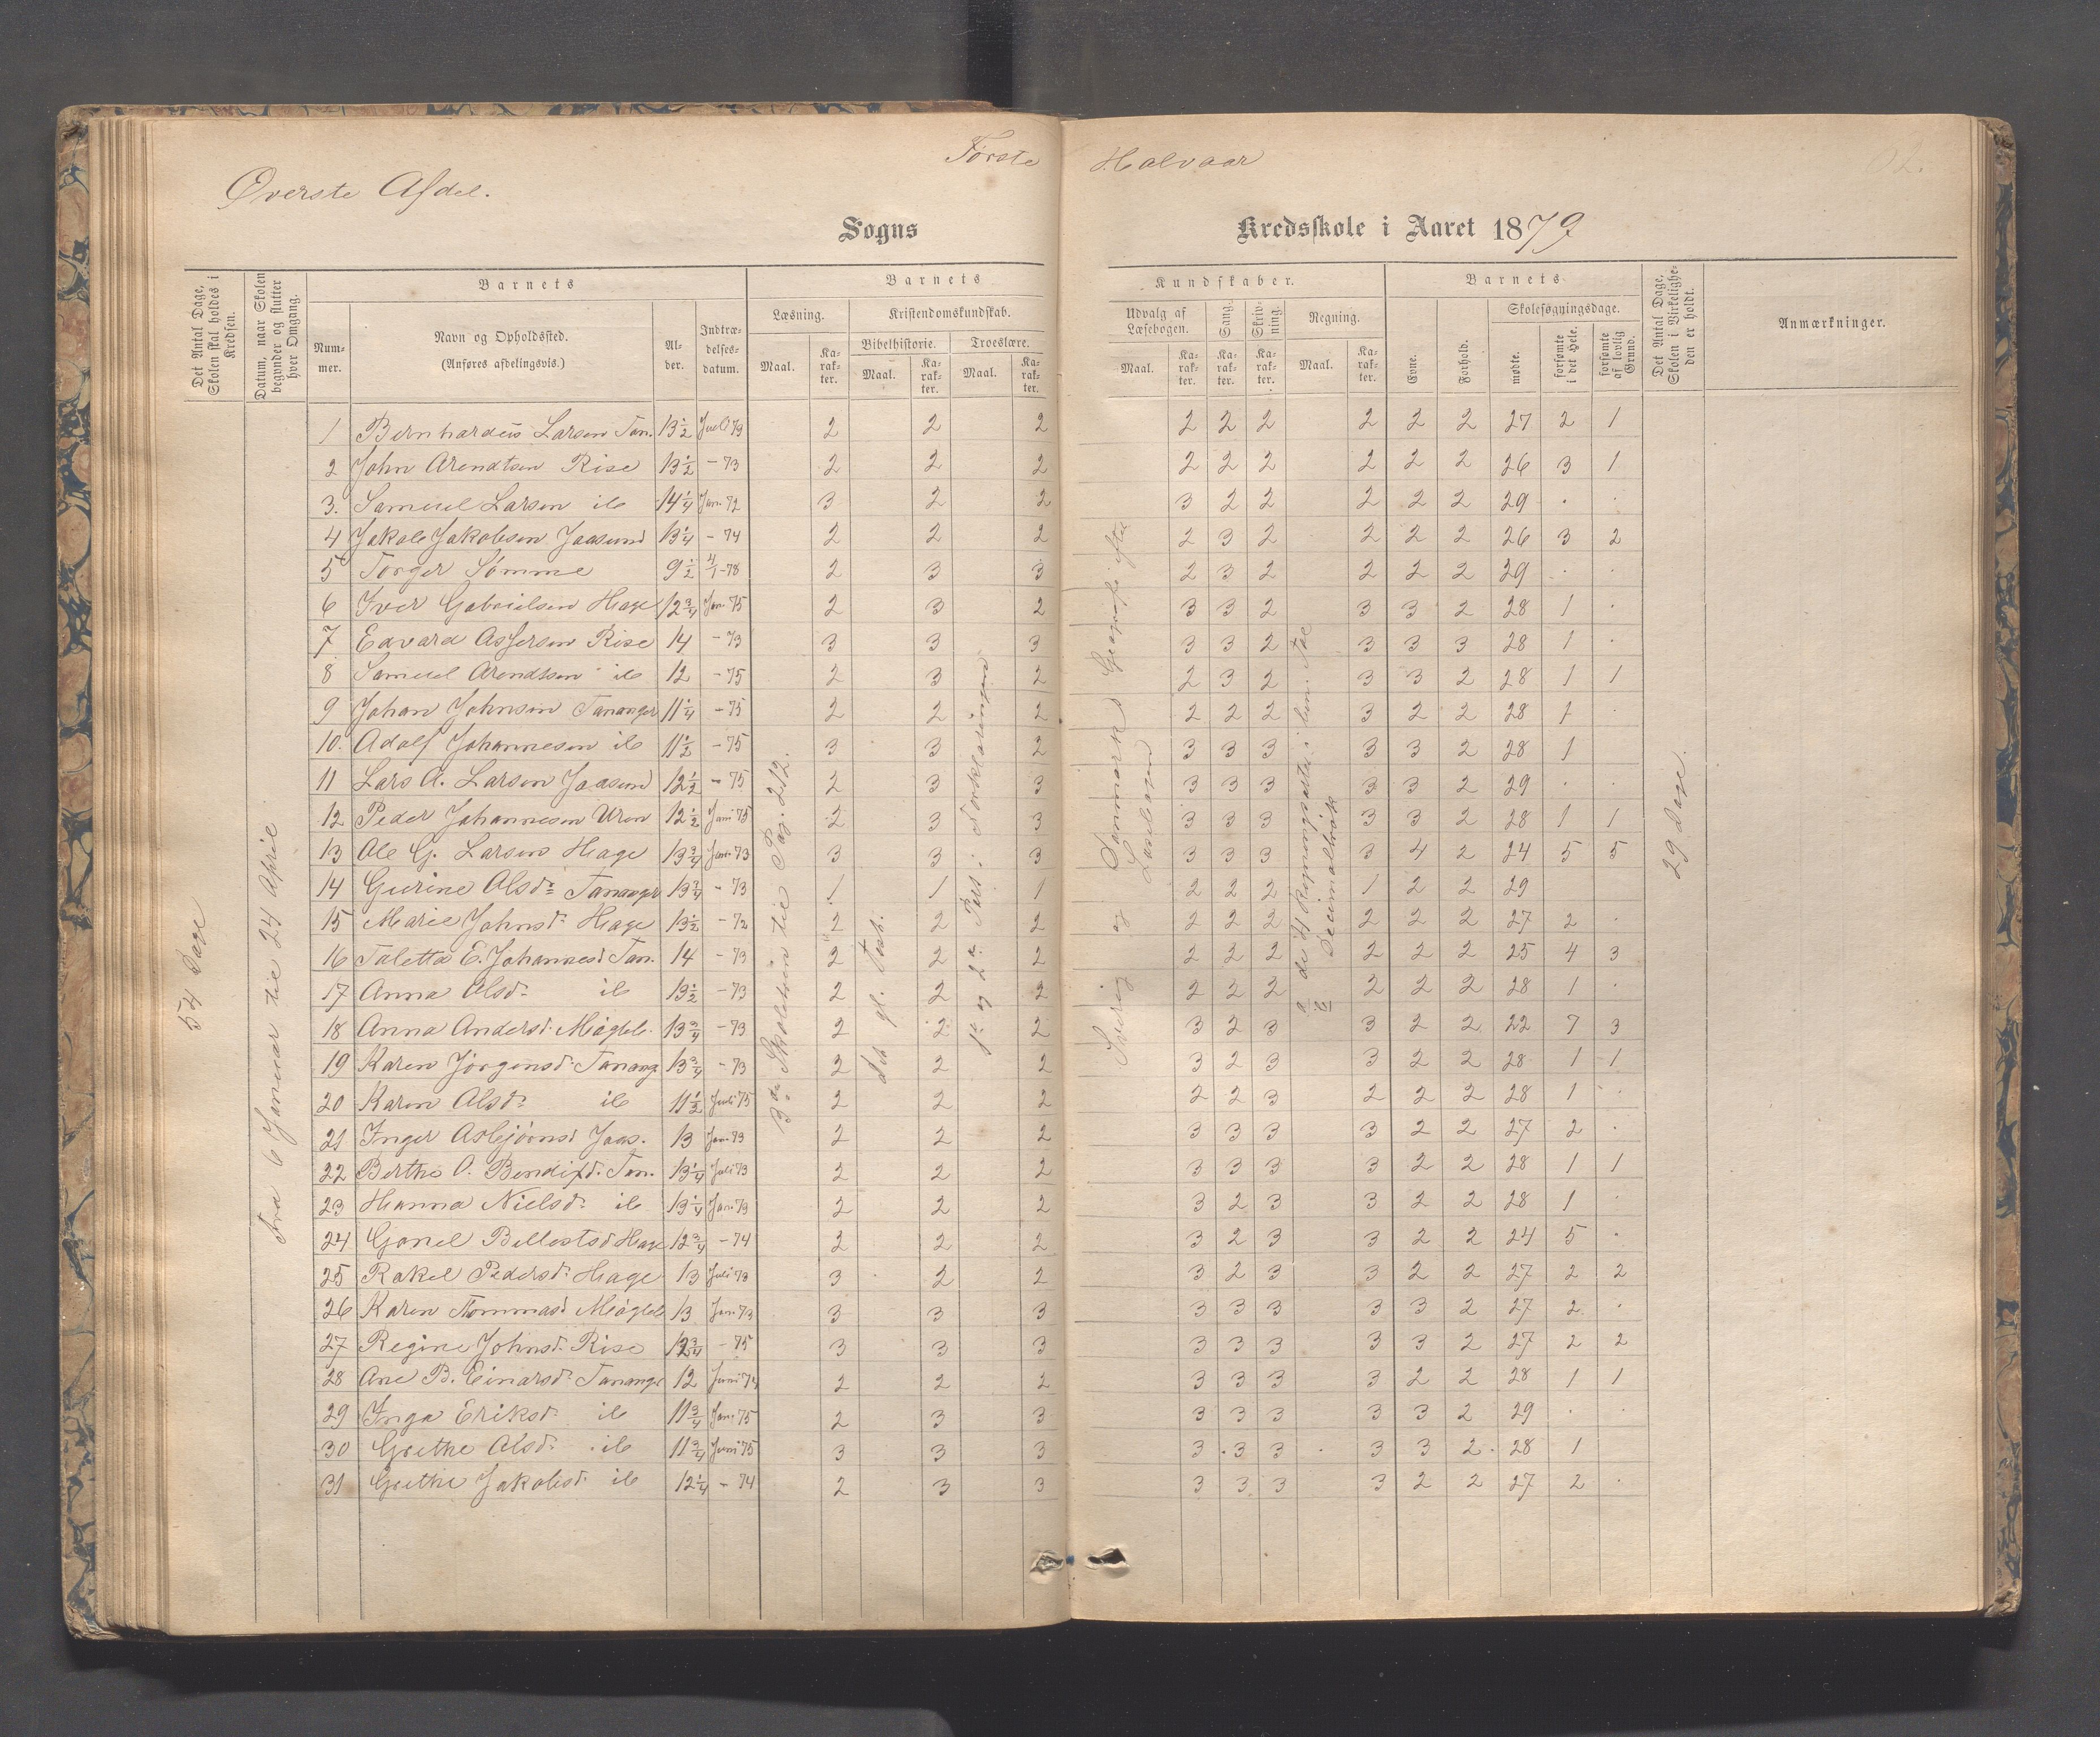 Første Halvaar
Øverste Afdel.
Sogns Kredsskole i Aaret 1879
Det Antal Dage, Skolen skal holdes i Kredsen.
Datum, naar Skolen begynder og slutter hver Omgang.
Barnets
Nummer.
Navn og Opholdssted.
(Anføres afdelingsvis.)
Alder.
Indtrædelsesdatum.
Barnets Kundskaber.
Læsning.
Maal. Karakter.
Kristendomskundskab.
Bibelhistorie.
Maal. Karakter.
Troeslære.
Maal. Karakter.
Udvalg af Læsebogen.
Maal. Karakter.
Sang.
Karakter.
Skrivning.
Karakter.
Regning.
Maal. Karakter.
Barnets
Evne.
Forhold.
Skolesøgningsdage.
mødte.
forsømte i det Hele.
forsømte af lovlig Grund.
Det Antal Dage, Skolen i Virkeligheden er holdt.
Anmærkninger.
54 Dage
Fra 6 Januar til 24 April
3die Skoletrin til Pag. 212.
det gl. Test.
1ste og 2den Part i Forklaringen
Sverig og Danmarks Geografi efter Læsebogen
de 4 Regningsarter i ben. Tal
Decimalbrøk
29 Dage.
1 Bernhardus Larsen Tan. 13 1/2 Juli 73 2 2 2 2 2 2 2 2 2 27 2 1
2 John Arendtsen Rise 13 1/2 - 73 2 2 2 2 2 2 2 2 2 26 3 1
3. Samuel Larsen ib 14 1/4 Jan. 72 3 2 2 3 2 2 2 2 2 29 . .
4 Jakob Jakobsen Jaasund 13 1/4 - 74 2 2 2 2 3 2 2 2 2 26 3 2
5 Torger Sømme 9 1/2 4/1 - 78 2 3 3 2 3 2 2 2 2 29 . .
6 Iver Gabrielsen Hage 12 3/4 Jan. 75 2 3 2 3 3 2 3 3 2 28 1 .
7 Edvard Assersen Rise 14 - 73 3 3 3 3 3 2 3 3 3 28 1 .
8 Samuel Arendtsen ib 12 - 75 2 3 2 2 3 2 3 3 2 28 1 1
9 Johan Johnsen Tananger 11 1/4 - 75 2 2 2 2 2 2 3 2 2 28 1 .
10. Adolf Johannesen ib 11 1/2 - 75 3 3 2 3 3 3 3 3 2 28 1
11 Lars A. Larsen Jaasund 12 1/2 - 75 2 3 3 3 3 3 3 3 2 29 . .
12 Peder Johannesen Uren 12 1/2 Juni 75 2 3 3 3 3 3 3 3 2 28 1 1
13 Ole G. Larsen Hage 13 3/4 Jan. 73 3 3 3 3 3 3 3 4 2 24 5 5
14 Gurine Olsd. Tananger 13 3/4 - 73 1 1 1 2 2 2 1 2 2 29
15 Marie Johnsd. Hage 13 1/2 - 72 2 2 2 2 2 2 2 2 2 27 2 .
16 Taletta E. Johannesd Tan. 14 - 73 2 2 2 2 2 2 2 2 2 25 4 3
17 Anna Olsd. ib 13 1/2 - 73 2 2 2 2 2 2 2 2 2 28 1 .
18 Anna Andersd. Miøgleb. 13 3/4 - 73 2 2 2 3 2 3 3 2 2 22 7 3
19 Karen Jørgensd. Tanang 13 3/4 - 73 2 2 2 3 2 3 3 2 2 28 1 1
20 Karen Olsd. ib 11 1/2 Juli 75 2 2 2 2 2 3 2 2 2 28 1 .
21 Inger Asbjørnsd Jaas. 13 Jan. 73 2 2 2 3 3 3 3 2 2 27 2 .
22 Berthe O. Bendixd. Tan. 13 1/4 Juli 73 2 2 2 3 3 3 3 2 2 28 1 1
23 Hanna Nielsd. ib 13 1/4 Jan. 73 2 2 2 3 2 3 3 2 2 28 1 .
24 Gonel Bellestsd Hage 12 3/4 - 74 2 2 2 3 2 3 3 2 2 24 5 .
25 Rakel Pedersd. Hage 13 Juli 73 3 2 2 3 2 3 3 2 2 27 2 2
26 Karen Tommasd Miøgleb 13 Jan. 73 3 3 3 3 3 3 3 3 2 27 2 .
27 Regine Johnsd. Rise 12 3/4 - 75 3 3 3 3 3 3 3 3 2 27 2 2
28 Ane B. Einarsd. Tananger 12 Juni 74 2 2 2 3 3 3 3 2 2 28 1 1
29 Inga Eriksd. ib 11 3/4 Jan. 75 2 3 3 3 3 3 3 3 2 29 . .
30 Grethe Olsd. ib 11 3/4 Juni 75 3 3 3 3 3 3 3 3 2 28 1
31 Grethe Jakobsd. ib 12 1/4 - 74 2 3 3 3 3 3 3 2 2 27 2 .